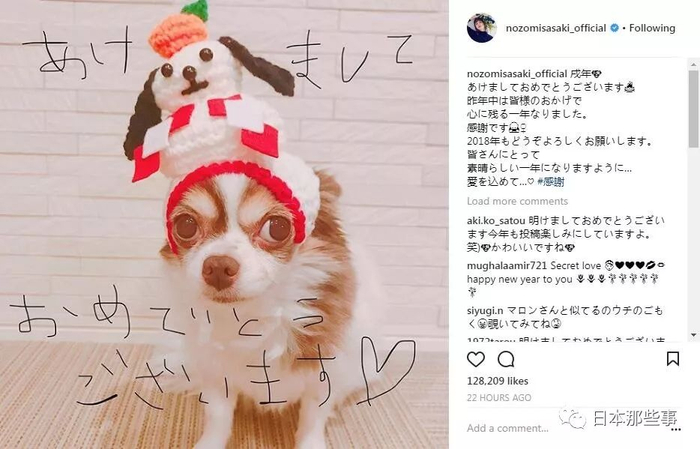 あけ まして
おめでとう
ございます♡
nozomisasaki_official • Following
nozomisasaki_official 戌年
あけましておめでとうございます
昨年中は皆様のおかげで
心に残る一年なりました。
感謝です
2018年もどうぞよろしくお願いします。
皆さんにとって
素晴らしい一年になりますように...
愛を込めて...♡ #感謝
Load more comments
aki.ko_satou 明けましておめでとうござい
ます今年も投稿楽しみにしていますよ。
笑)かわいいですね
mughalaamir721 Secret love
happy new year to you
siyugi.n マロンさんと似てるのウチのごも
く覗いてみてね
1972tarou 明けましておめでとうございま
128,209 likes
22 HOURS AGO
Add a comment...
日本那些事